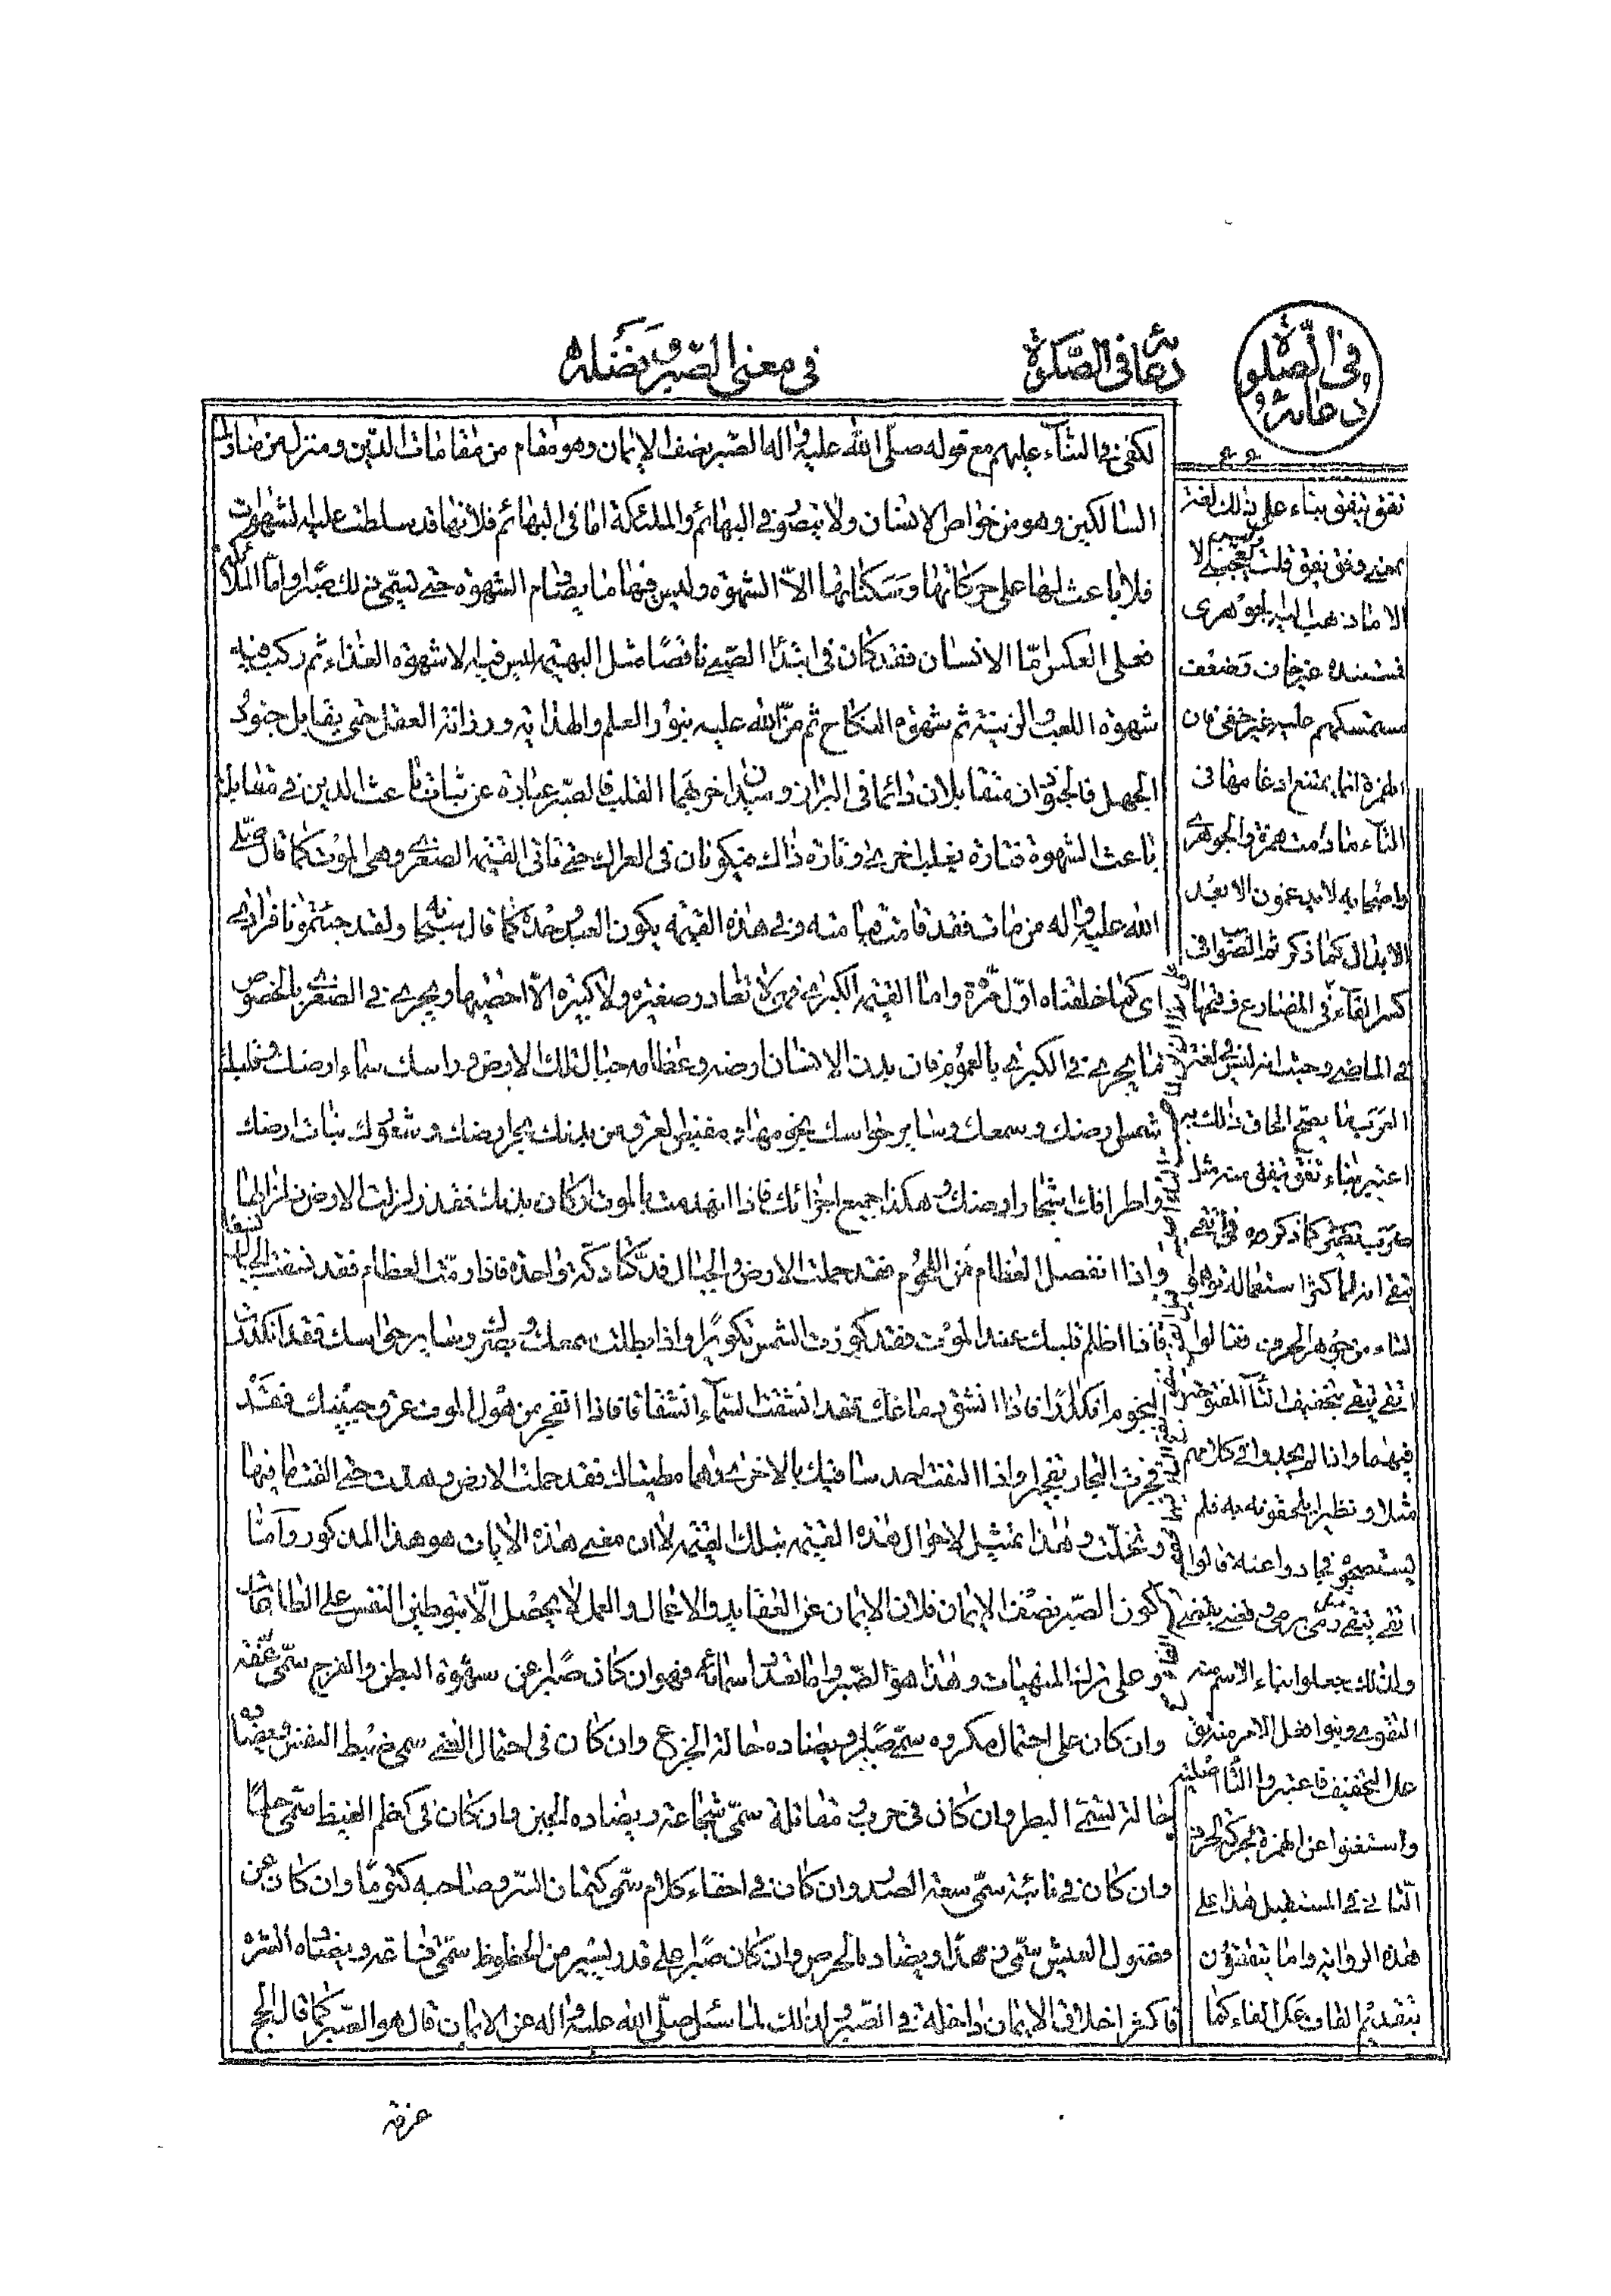 في الصلوة
دعائه
دعائه في الصلوة
في معنى الصبر وفضله
لكفى في الثناء عليهم مع قوله صلى الله عليه واله الصبر نصف الإيمان وهو مقام من مقامات الدين ومنزل من منازل
السالكين وهو من خواص الإنسان ولا يتصور في البهائم والملئكة اما في البهائم فلانها قد سلطت عليه الشهوات
فلا باعث لها على حركاتها وسكناتها الا الشهوة وليس فيها ما يصادم الشهوة حتى يسمى ذلك صبرا واما الملائكة
فعلى العكس اما الانسان فقد كان في ابتداء الصبى ناقصا مثل البهيمة ليس فيه الا شهوة الغذاء ثم ركب فيه
شهوة اللعب والزينة ثم شهوة النكاح ثم من الله عليه بنور العلم والهداية ورزانة العقل حتى يقابل جنود
الجهل فالجندان متقابلان دائما في البراز وميدان حربهما القلب فالصبر عبارة عن ثبات باعث الدين في مقابلة
باعث الشهوة فتارة يغلب اخرى وتارة ذاك فيكونان في العراك حتى تاتي القيمة الصغرى وهي الموت كما قال صلى
الله عليه واله من مات فقد قامت قيامته وفي هذه القيمة يكون العبد وحده كما قال سبحانه ولقد جئتمونا فرادى
كما خلقناه اول مرة واما القيمة الكبرى فهي لا تغادر صغيرة ولا كبيرة الا احصيها ويجرى في الصغرى بالخصوص
ما يجرى في الكبرى بالعموم فان بدن الانسان ارضه وعظامه جبال تلك الارض وراسك سماء ارضك وقلبك
شمس ارضك وسمعك وساير حواسك نجومها ومفيض العرق من بدنك بحر ارضك وشعرك نبات ارضك
واطرافك اشجار ارضك وهكذا جميع اجزائك فاذا انهدمت بالموت اركان بدنك فقد زلزلت الارض زلزالها
واذا انفصل العظام من اللحوم فقد حملت الارض والجبال فدكتا دكة واحدة فاذا رمت العظام فقد نسفت الجبال نسفا
فاذا اظلم قلبك عند الموت فقد كورت الشمس تكويرا واذا بطلت سمعك وبصرك وساير حواسك فقد انكدرت
النجوم انكدارا فاذا انشق دماغك فقد انشقت السماء انشقاقا فاذا انفجر من هول الموت عرق جبينك فقد
فجرت البحار تفجيرا واذا التفت احد ساقيك بالاخرى وهما مطيتاك فقد حملت الارض ومدت حتى القت ما فيها
وتخلت وهذا تمثيل لاحوال هذه القيمة بتلك القيمة لا ان معنى هذه الايات هو هذا المذكور واما
كون الصبر نصف الإيمان فلان الايمان عن العقايد والاعمال والعمل لا يحصل الا بتوطين النفس على الطاعات
وعلى ترك المنهيات وهذا هو الصبر واما تعدد اسمائه فهو ان كان صبرا عن شهوة البطن والفرج سمى عفة
وان كان على احتمال مكروه سمى صبرا ويضاده حالة الجزع وان كان في احتمال الغنى سمى ضبط النفس ويضاده
حالة تسمى البطر وان كان في حرب ومقاتلة سمى شجاعة ويضاده الجبن وان كان في كظم الغيظ سمى حلما
وان كان في نائبة سمى سعة الصدر وان كان في اخفاء كلام سمى كتمان السر وصاحبه كتوما وان كان عن
فضول العيش سمى زهدا ويضاده الحرص وان كان صبرا على قدر يسير من الحظوظ سمى قناعة ويضاده الشره
فاكثر اخلاق الايمان داخلة في الصبر ولذلك لما سئل صلى الله عليه واله عن الايمان قال هو الصبر كما قال الحج
عرفة
تفق يتفق بناء على ذلك لغة
الا ما ذهب اليه الجوهري
مستمسكهم عليه غير خفي فان
الهمزة انما يمتنع ادغامها في
التاء ما دامت همزة والجوهري
واضرابه لا يدعون الا بعد
الابدال كما ذكر ثم الصواب
كسر القاف في المضارع وفتحها
في الماضي وحيث انه ليس في لغة
العرب ما يصح الحاق ذلك به
تقى انه لما كثر استعماله توهموا
التاء من جوهر الحرف فقالوا
اتقى يتقى بتخفيف التاء المفتوحة
فيهما واذا لم يجدوا في كلامهم
مثلا ونظيرا يلحقونه به فلم
ولذلك جعلوا بناء الاسم منه
التقوى وبنوا فعل الامر منه تق
على التخفيف فاعتبروا التاء اصلية
واستغنوا عن الهمزة بحركة الحرف
الثاني في المستقبل هذا على
هذه الرواية واما يتفقون
بتقديم القاف على الفاء كما